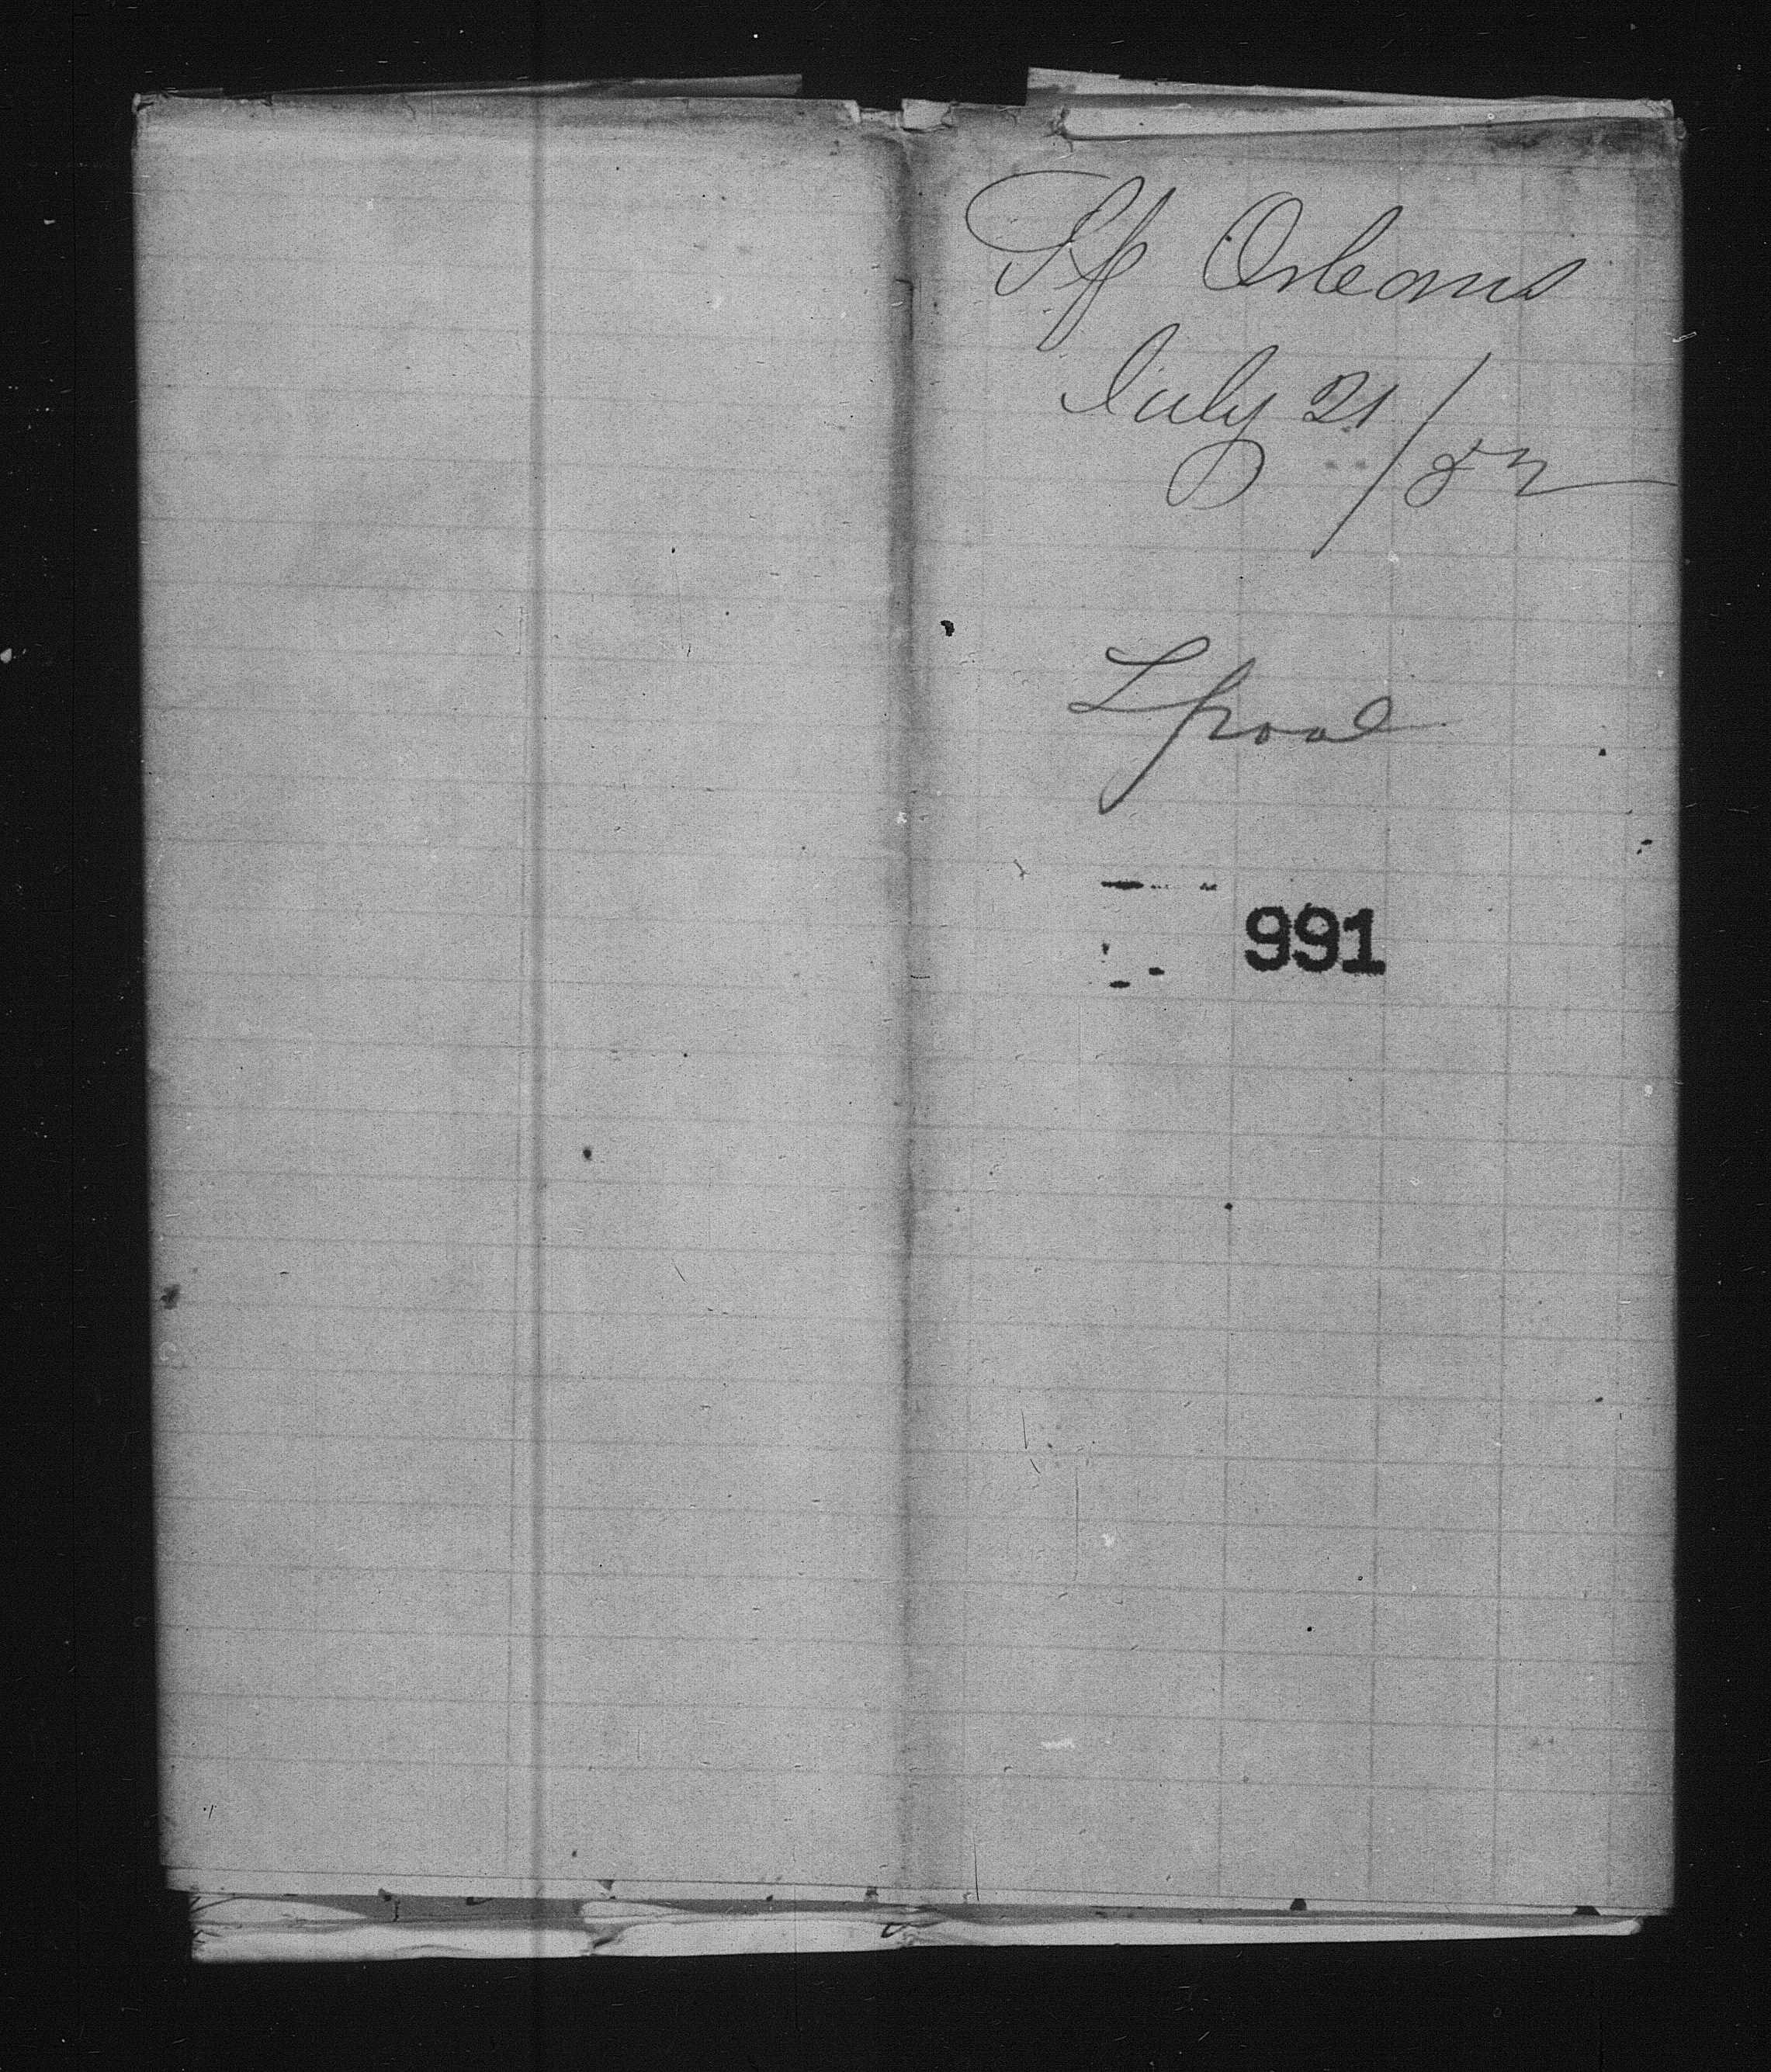 Sp Orleans
July 21/82
Lpool
991